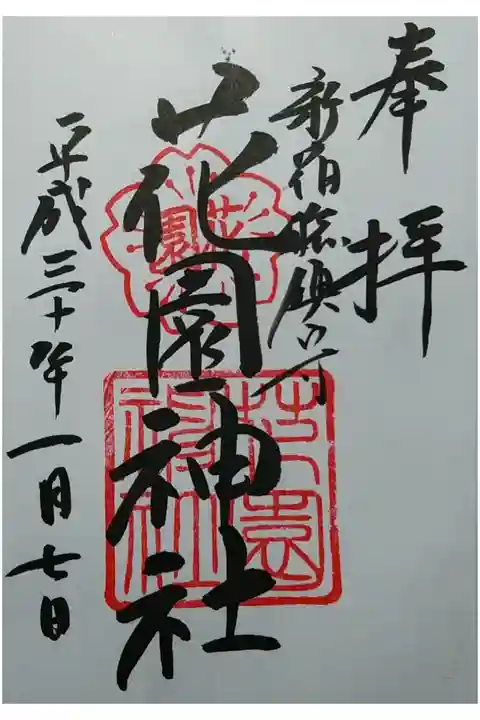 奉拝
新宿総鎮守
花園神社
平成三十年一月七日
花園
花園神社